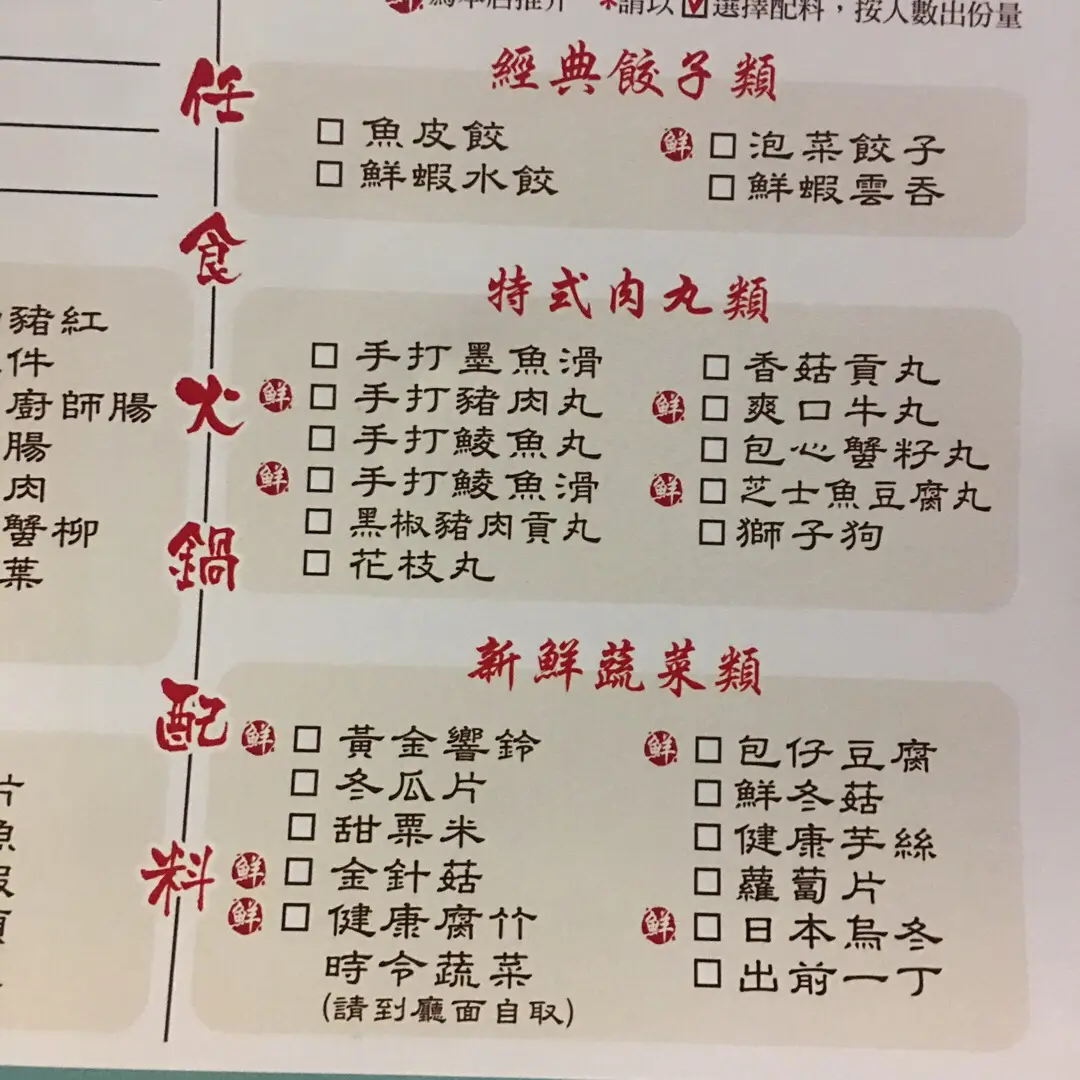 為本店推介 *請以☑選擇配料,按人數出份量
任食火鍋配料
豬紅
件
廚師腸
腸
肉
蟹柳
葉
片
魚
經典餃子類
□ 魚皮餃
□ 鮮蝦水餃
鮮 □ 泡菜餃子
□ 鮮蝦雲吞
特式肉丸類
□ 手打墨魚滑
鮮 □ 手打豬肉丸
□ 手打鯪魚丸
鮮 □ 手打鯪魚滑
□ 黑椒豬肉貢丸
□ 花枝丸
□ 香菇貢丸
鮮 □ 爽口牛丸
□ 包心蟹籽丸
鮮 □ 芝士魚豆腐丸
□ 獅子狗
新鮮蔬菜類
鮮 □ 黃金響鈴
□ 冬瓜片
□ 甜粟米
鮮 □ 金針菇
鮮 □ 健康腐竹
時令蔬菜
(請到廳面自取)
鮮 □ 包仔豆腐
□ 鮮冬菇
□ 健康芋絲
□ 蘿蔔片
鮮 □ 日本烏冬
□ 出前一丁